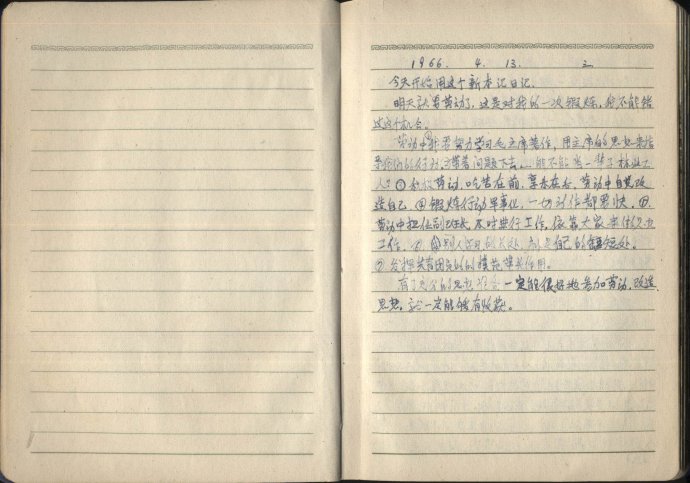 1966. 4. 13. 三
今天开始用这个新本记日记。
明天就要劳动了，这是对我的一次锻炼，我不能错
过这个机会。
劳动中①我要努力学习毛主席著作，用主席的思想来指
导我们的行动，带着问题下去，能不能当一辈子
人？②积极劳动，吃苦在前，享乐在后，劳动中自觉改
造自己。③锻炼行动军事化，一切动作都要快。④
劳动中担任副班长，及时进行工作，依靠大家来做
工作。⑤ 别人 的长处，自己的短处。
⑥发挥共青团员的模范带头作用。
有了充分的思想准备一定能很好地参加劳动，改造
思想，一定能够有收获。